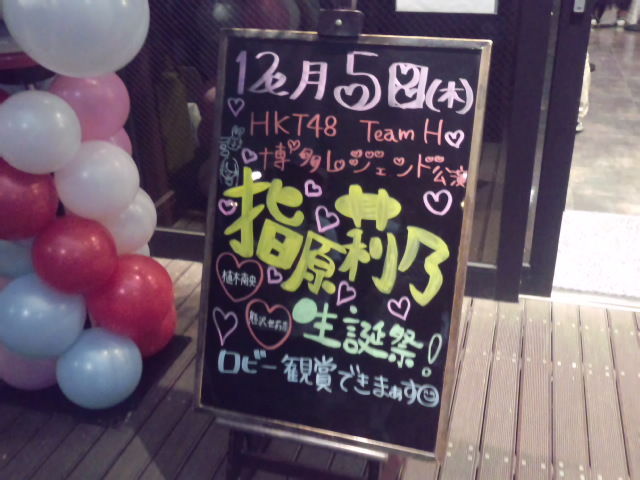 12月5日(木)
HKT48 Team H
博多レジェンド公演
指原莉乃
植木南央
生誕祭!
ロビー観賞できまぁす